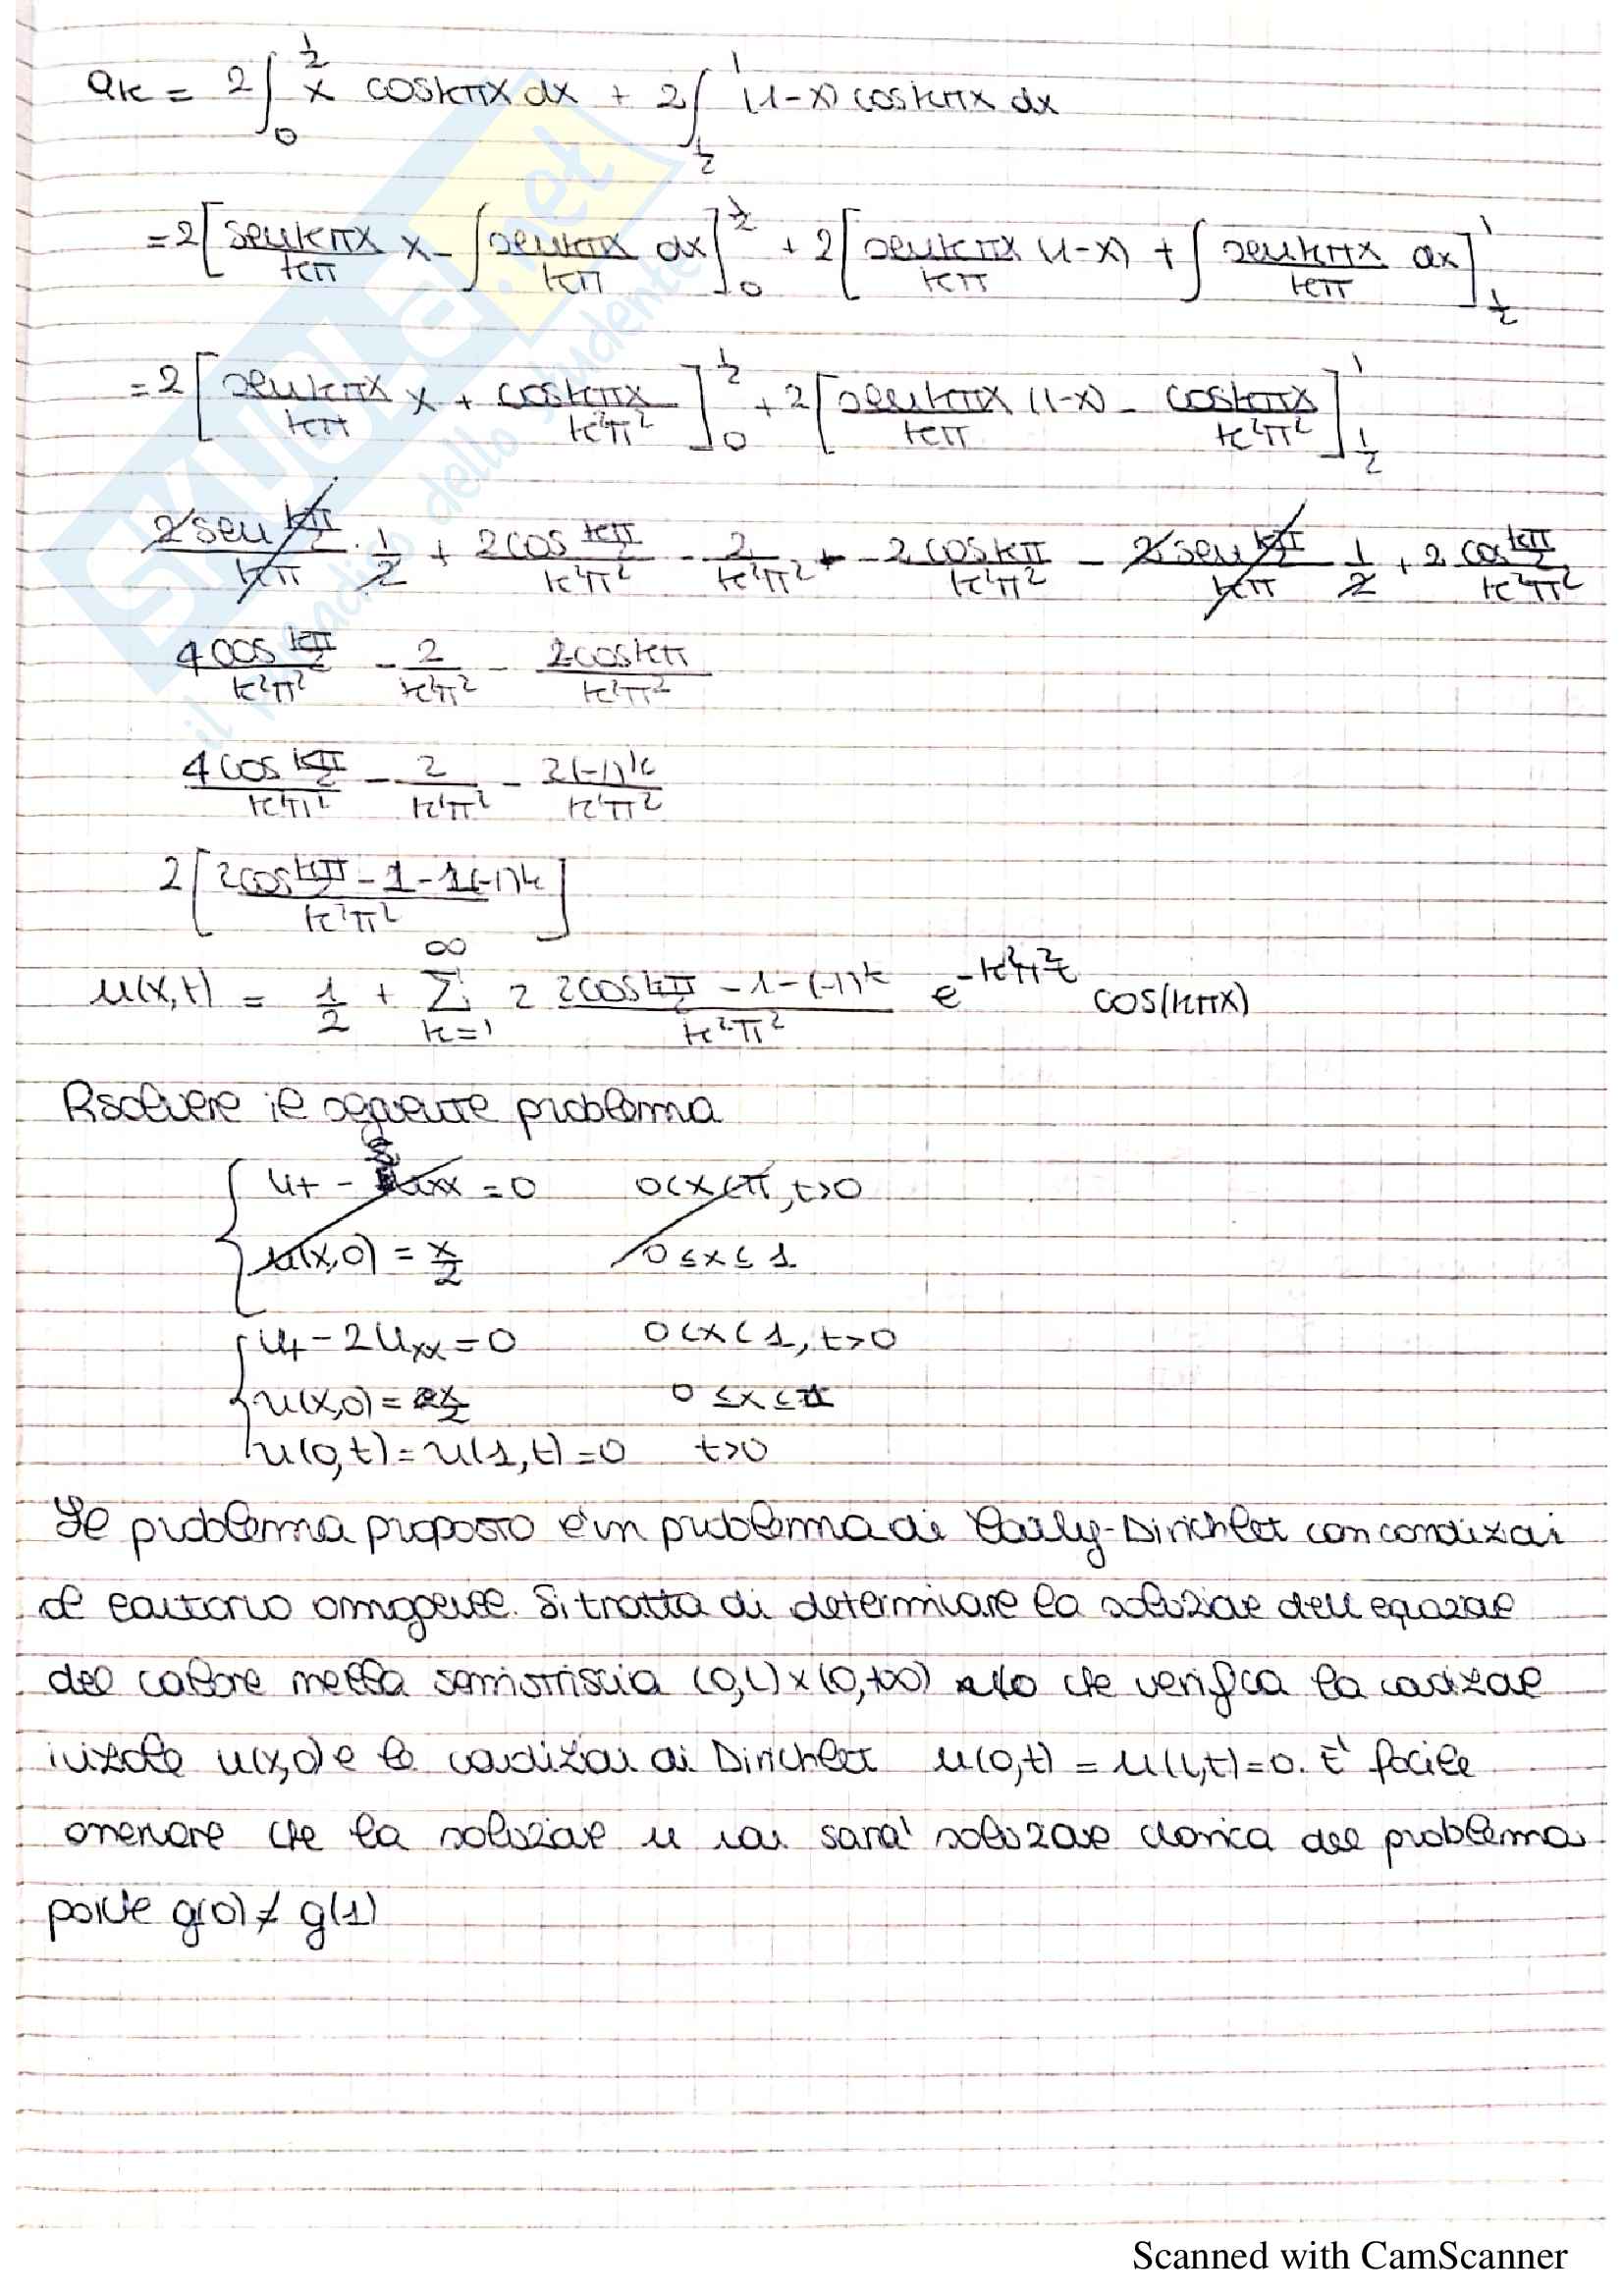 a_k = 2∫_0^{1/2} x cos kπx dx + 2∫_{1/2}^1 (1-x) cos kπx dx
= 2[ (sen kπx)/(kπ) x - ∫ (sen kπx)/(kπ) dx ]_0^{1/2} + 2[ (sen kπx)/(kπ) (1-x) + ∫ (sen kπx)/(kπ) dx ]_{1/2}^1
= 2[ (sen kπx)/(kπ) x + (cos kπx)/(k²π²) ]_0^{1/2} + 2[ (sen kπx)/(kπ) (1-x) - (cos kπx)/(k²π²) ]_{1/2}^1
(2 sen kπ/2)/(kπ) · 1/2 + (2 cos kπ/2)/(k²π²) - 2/(k²π²) + - (2 cos kπ)/(k²π²) - (2 sen kπ/2)/(kπ) 1/2 + 2 (cos kπ/2)/(k²π²)
(4 cos kπ/2)/(k²π²) - 2/(k²π²) - (2 cos kπ)/(k²π²)
(4 cos kπ/2)/(k²π²) - 2/(k²π²) - (2(-1)^k)/(k²π²)
2[ (2 cos kπ/2 - 1 - 1(-1)^k)/(k²π²) ]
u(x,t) = 1/2 + ∑_{k=1}^∞ 2 (2 cos kπ/2 - 1 - (-1)^k)/(k²π²) e^{-k²π²t} cos(kπx)
Risolvere il seguente problema
u_t - 5u_xx = 0 0<x<π, t>0
u(x,0) = x/2 0≤x≤1
u_t - 2u_xx = 0 0<x<1, t>0
u(x,0) = x/2 0≤x≤1
u(0,t) = u(1,t) = 0 t>0
Il problema proposto è un problema di Cauchy-Dirichlet con condizioni
al contorno omogenee. Si tratta di determinare la soluzione dell'equazione
del calore nella semistriscia (0,L)×(0,+∞) che verifica la condizione
iniziale u(x,0) e le condizioni di Dirichlet u(0,t) = u(L,t)=0. È facile
osservare che la soluzione u non sarà soluzione classica del problema
poiché g(0) ≠ g(1)
SKUOLA.net
il paradiso dello studente
Scanned with CamScanner